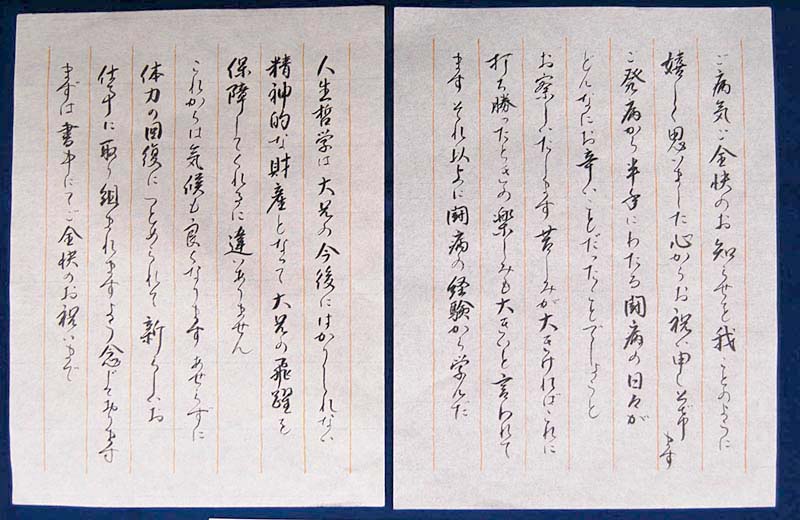 ご病気ご全快のお知らせを我がことのように
嬉しく思いました心からお祝い申しあげます
ご発病から半年にわたる闘病の日々が
どんなにお辛いことだったことでしょうと
お察しいたします苦しみが大きければこれに
打ち勝ったときの楽しみも大きいと言われて
ますそれ以上に闘病の経験から学んだ
人生哲学は大兄の今後にはかりしれない
精神的な財産となって大兄の飛躍を
保障してくれるに違いありません
これからは気候も良くなりますあせらずに
体力の回復につとめられて新しいお
仕事に取り組まれますよう念じております
まずは書中にてご全快のお祝いまで